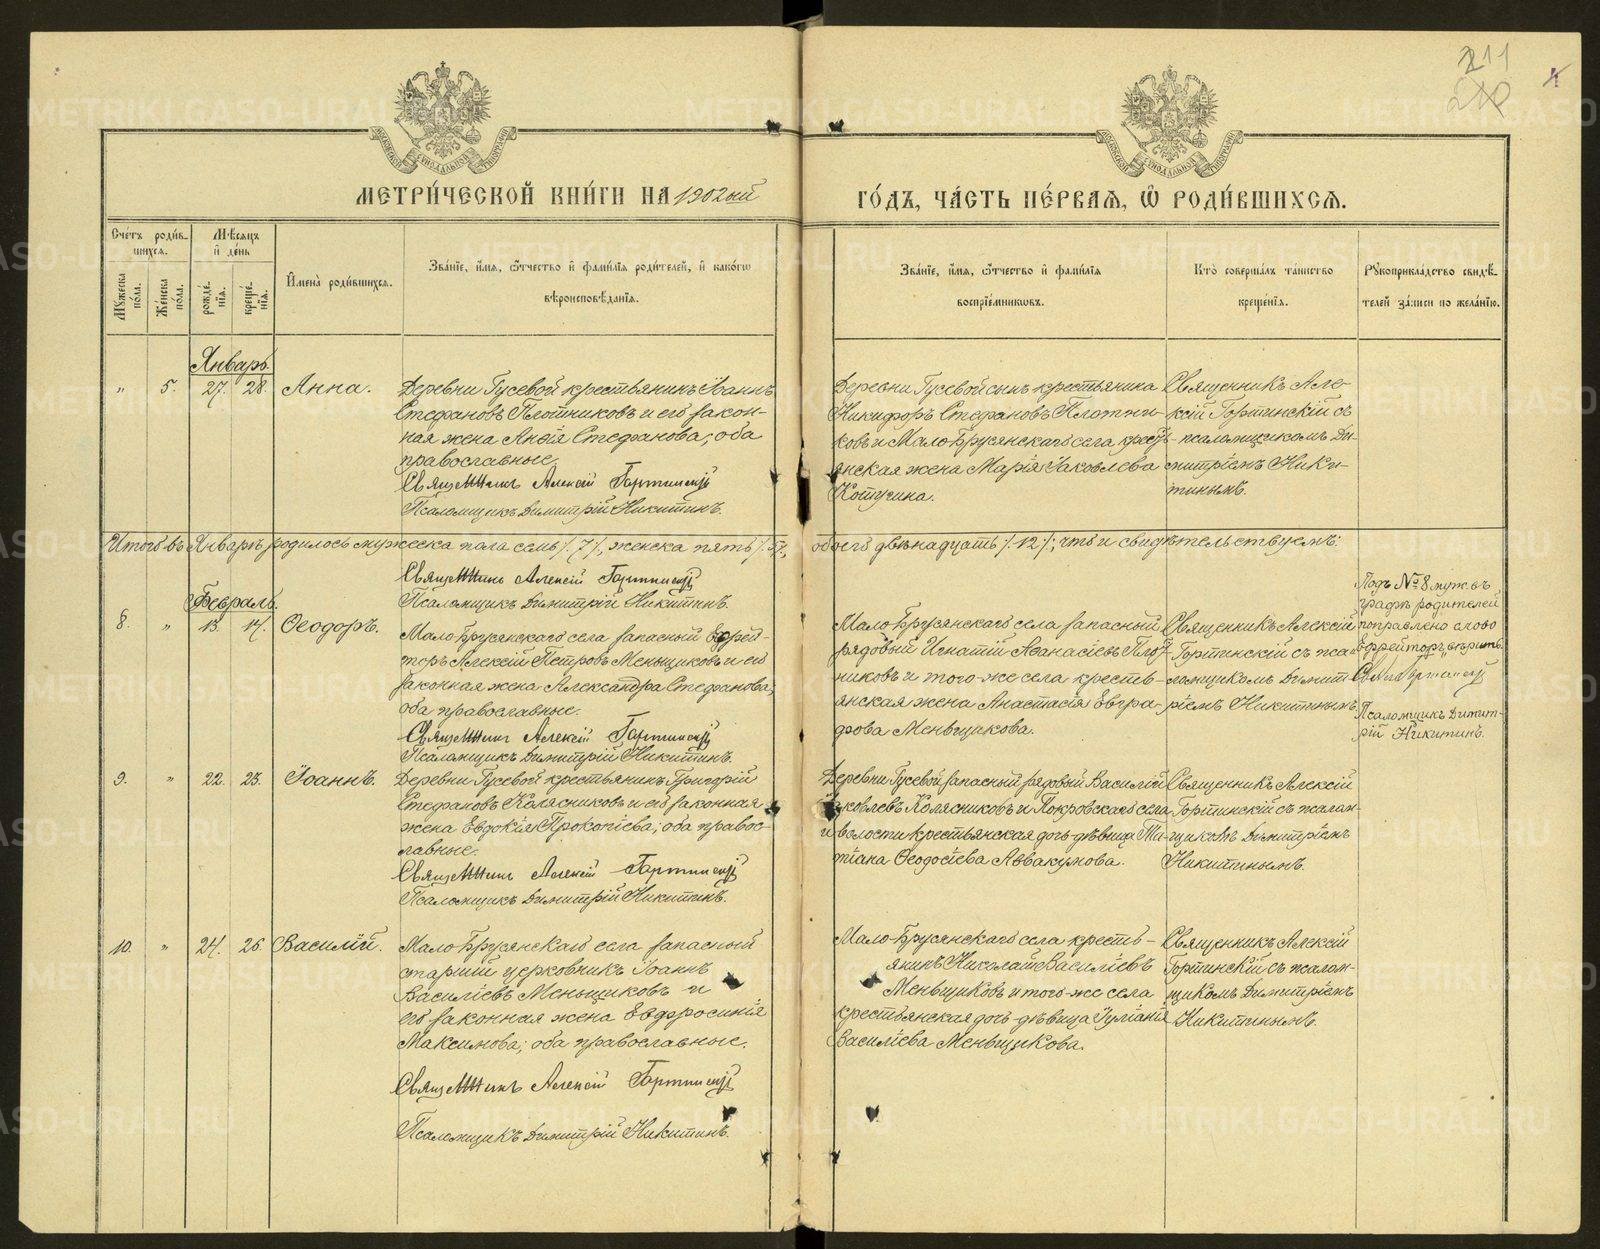 211
210
МЕТРИ́ЧЕСКОЙ КНИ́ГИ НА 1902ый
ГО́ДЪ, ЧА́СТЬ ПЕ́РВАѦ, Ѽ РОДИ́ВШИХСѦ.
Сче́тъ роди́в-
шихсѧ.
Мѣ́сѧцъ
и҆ де́нь
Мꙋ́жеска по́ла.
Же́нска по́ла.
рожде́-
нїѧ.
креще́-
нїѧ.
И҆мена̀ роди́вшихсѧ.
Зва́нїе, и҆́мѧ, ѻ҆́тчество и҆ фами́лїѧ роди́телей, и҆ како́гѡ
вѣроисповѣ́данїѧ.
Зва́нїе, и҆́мѧ, ѻ҆́тчество и҆ фами́лїѧ
воспрїе́мникѡвъ.
Кто̀ соверша́лъ та́инство
креще́нїѧ.
Рꙋкоприкла́дство свидѣ́-
телей за́писи по жела́нїю.
Январь.
" 5. 27. 28. Анна.
Деревни Гусевой крестьянинъ Іоаннъ
Стефановъ Плотниковъ и его закон-
ная жена Анѳія Стефанова; оба
православные.
Священникъ Алексій Гортинскій
Псаломщикъ Димитрій Никитинъ.
Деревни Гусевой сынъ крестьянина
Никифоръ Стефановъ Плотни-
ковъ и Мало-Брусянскаго села крест-
янская жена Марія Іаковлева
Котугина.
Священникъ Але-
ксій Гортинскій съ
псаломщикомъ Ди-
митріемъ Ники-
тинымъ.
Итого въ Январѣ родилось мужеска пола семь /. 7 /., женска пять /. 5 /.,
обоего двѣнадцать /. 12 /.; что и свидѣтельствуемъ:
Священникъ Алексій Гортинскій
Псаломщикъ Димитрій Никитинъ.
Февраль.
8. " 13. 14. Ѳеодоръ.
Мало-Брусянскаго села запасный Ефрей-
торъ Алексій Петровъ Меньщиковъ и его
законная жена Александра Стефанова;
оба православные.
Священникъ Алексій Гортинскій
Псаломщикъ Димитрій Никитинъ.
Мало-Брусянскаго села запасный
рядовый Игнатій Аѳанасіевъ Плот-
никовъ и того-же села кресть-
янская жена Анастасія Евгра-
фова Меньщикова.
Священникъ Алексій
Гортинскій съ пса-
ломщикомъ Димит-
ріемъ Никитинымъ.
Подъ № 8 муж. въ
графѣ родителей
поправлено слово
"Ефрейторъ" вѣрить.
Псаломщикъ Димит-
рій Никитинъ.
9. " 22. 23. Іоаннъ.
Деревни Гусевой крестьянинъ Григорій
Стефановъ Колясниковъ и его законная
жена Евдокія Прокопіева; оба правос-
лавные.
Священникъ Алексій Гортинскій
Псаломщикъ Димитрій Никитинъ.
Деревни Гусевой запасный рядовый Василій
Іаковлевъ Колясниковъ и Покровскаго села
и волости крестьянская дочь-дѣвица Та-
тіана Ѳеодосіева Аввакумова.
Священникъ Алексій
Гортинскій съ псалом-
щикомъ Димитріемъ
Никитинымъ.
10. " 24. 26. Василій.
Мало-Брусянскаго села запасный
старшій церковникъ Іоаннъ
Василіевъ Меньщиковъ и
его законная жена Евфросинія
Максимова; оба православные.
Священникъ Алексій Гортинскій
Псаломщикъ Димитрій Никитинъ.
Мало-Брусянскаго села кресть-
янинъ Николай Василіевъ
Меньщиковъ и того-же села
крестьянская дочь-дѣвица Іуліанія
Василіева Меньщикова.
Священникъ Алексій
Гортинскій съ псалом-
щикомъ Димитріемъ
Никитинымъ.
METRIKI.GASO-URAL.RU